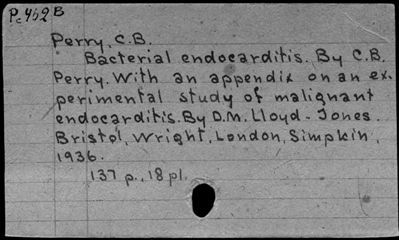 Pc452B
Perry, C.B.
Bacterial endocarditis. By C.B.
Perry. With an appendix on an ex-
perimental study of malignant
endocarditis. By D.M. Lloyd-Jones.
Bristol, Wright, London, Simpkin,
1936.
137 p., 18 pl.